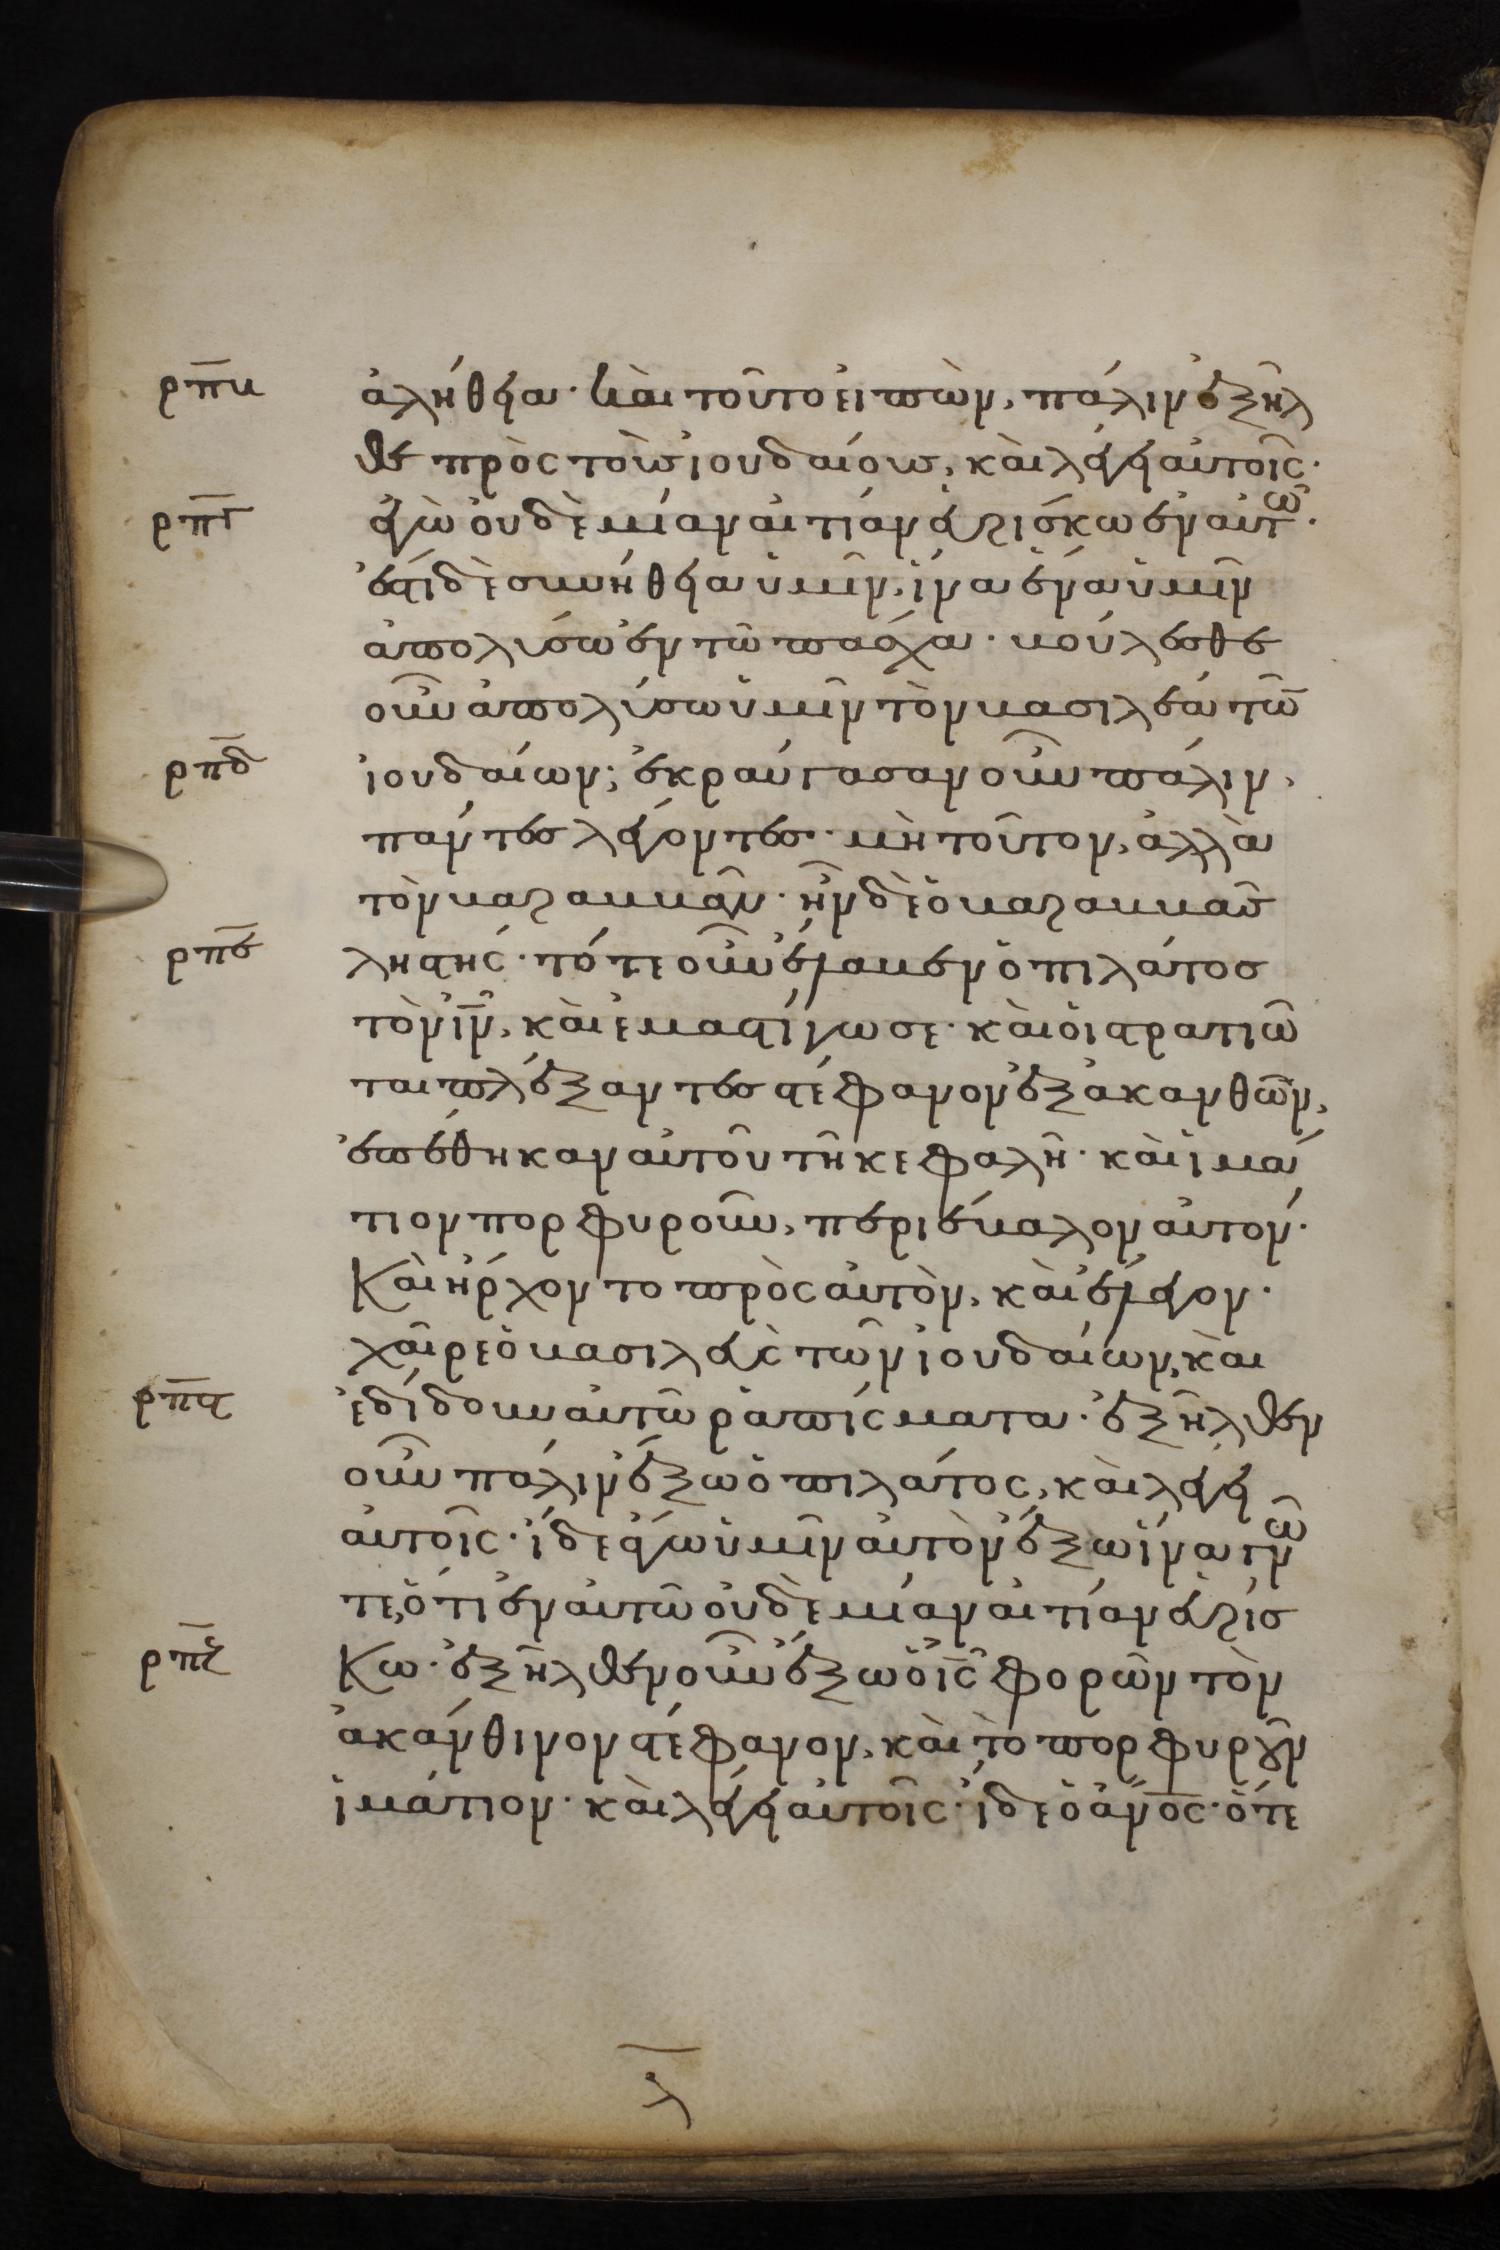 ρπβ ἀλήθεια· καὶ τοῦτο εἰπὼν, πάλιν ἐξῆλ
θε πρὸς τοὺς ἰουδαίους, καὶ λέγει αὐτοῖς·
ρπγ ἐγὼ οὐδὲ μίαν αἰτίαν εὑρίσκω ἐν αὐτῶ·
ἔστι δὲ συνήθεια ὑμῖν, ἵνα ἕνα ὑμῖν
ἀπολύσω ἐν τῶ πάσχα· βούλεσθε
οὖν ἀπολύσω ὑμῖν τὸν βασιλέα τῶν
ρπδ ἰουδαίων; ἐκραύγασαν οὖν πάλιν,
πάντες λέγοντες· μὴ τοῦτον, ἀλλὰ
τὸν βαραββᾶν· ἦν δὲ ὁ βαραββᾶς
ρπε ληστής· τότε οὖν ἔλαβεν ὁ πιλάτος
τὸν ἰν̅, καὶ ἐμαστίγωσε· καὶ οἱ στρατιῶ
ται πλέξαντες στέφανον ἐξ ἀκανθῶν,
ἐπέθηκαν αὐτοῦ τῆ κεφαλῆ· καὶ ἱμά
τιον πορφυροῦν, περιέβαλον αὐτόν·
Καὶ ἤρχοντο πρὸς αὐτὸν, καὶ ἔλεγον·
χαῖρε ὁ βασιλεὺς τῶν ἰουδαίων, καὶ
ρπϛ ἐδίδουν αὐτῶ ῥαπίσματα· ἐξῆλθεν
οὖν πάλιν ἔξω ὁ πιλάτος, καὶ λέγει
αὐτοῖς· ἴδε ἄγω ὑμῖν αὐτὸν ἔξω ἵνα γνῶ
τε, ὅτι ἐν αὐτῶ οὐδὲ μίαν αἰτίαν εὑρίσ
ρπζ Κω· ἐξῆλθεν οὖν ἔξω ὁ ἰς̅ φορῶν τὸν
ἀκάνθινον στέφανον, καὶ τὸ πορφυροῦν
ἱμάτιον· καὶ λέγει αὐτοῖς· ἴδε ὁ ἄν̅ο̅ς̅· ὅτε
λ̅